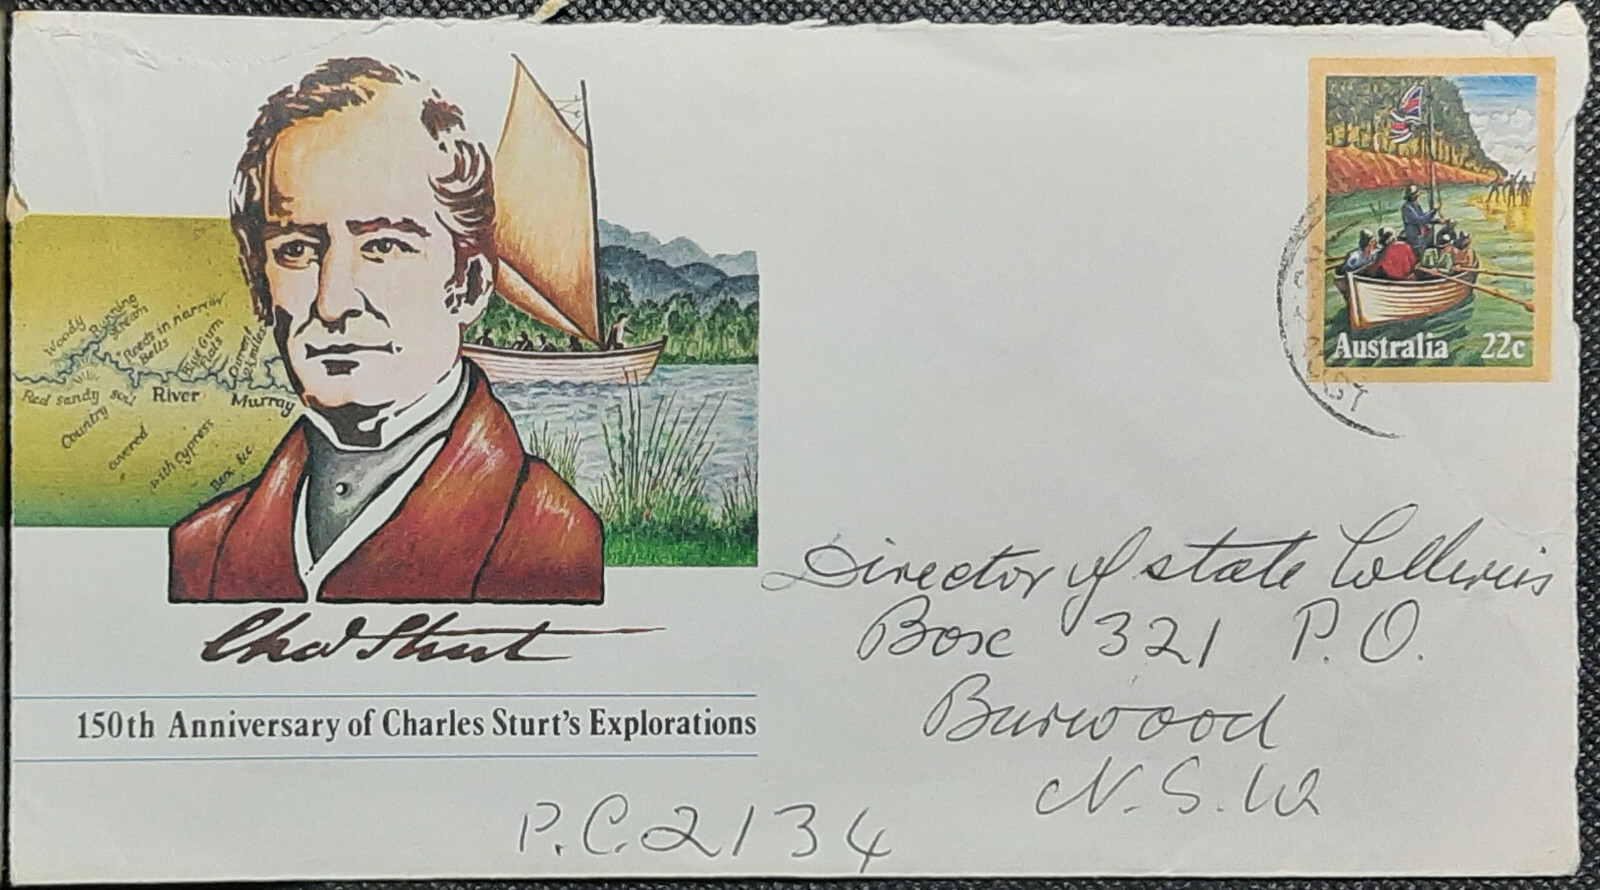 Australia 22c
Woody
Running
Stream
Reeds in narrow
Belts
Blue Gum
Flats
Current
2½ miles
Red sandy soil
Country
covered
with Cypress
Box &c
River Murray
Chas Sturt
150th Anniversary of Charles Sturt's Explorations
Director of State
Box 321 P.O.
Burwood
N.S.W
P.C.2134